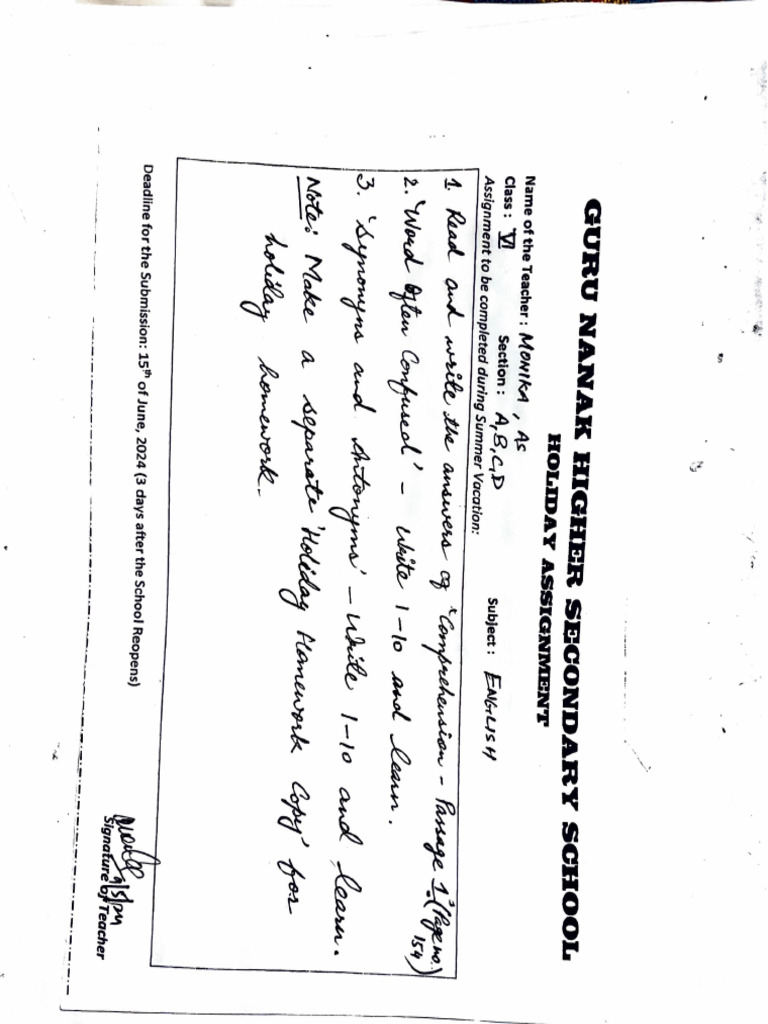 GURU NANAK HIGHER SECONDARY SCHOOL
HOLIDAY ASSIGNMENT
Name of the Teacher : MONIKA, AS
Class : VI Section : A, B, C, D Subject : ENGLISH
Assignment to be completed during Summer Vacation:
1. Read and write the answers of 'Comprehension - Passage 1' (Page no. 154)
2. 'Word Often Confused' - Write 1-10 and learn.
3. 'Synonyms and Antonyms' - Write 1-10 and learn.
Note: Make a separate 'Holiday Homework Copy' for
holiday homework.
Deadline for the Submission: 15th of June, 2024 (3 days after the School Reopens)
9/5/24
Signature of Teacher